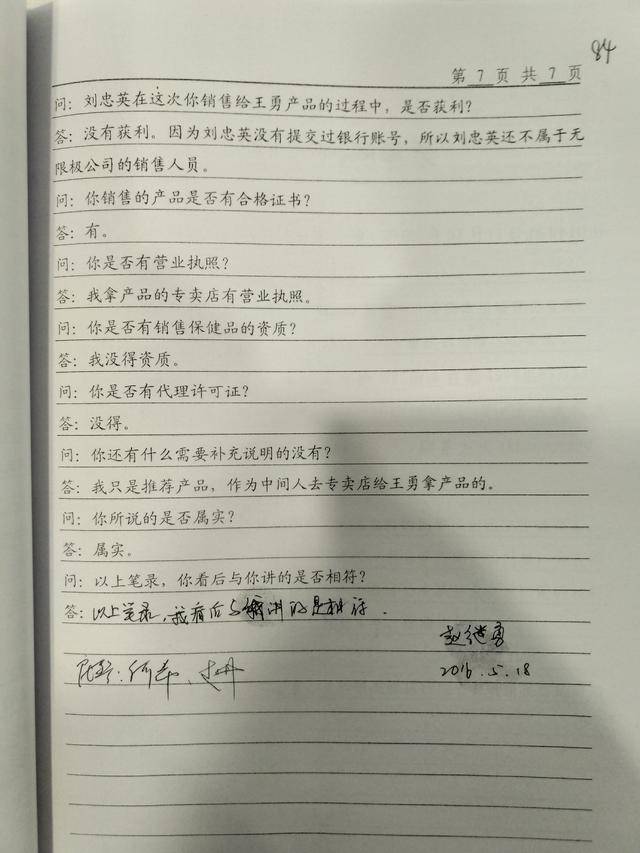 84
第 7 页 共 7 页
问：刘忠英在这次你销售给王勇产品的过程中，是否获利？
答：没有获利。因为刘忠英没有提交过银行账号，所以刘忠英还不属于无
限极公司的销售人员。
问：你销售的产品是否有合格证书？
答：有。
问：你是否有营业执照？
答：我拿产品的专卖店有营业执照。
问：你是否有销售保健品的资质？
答：我没得资质。
问：你是否有代理许可证？
答：没得。
问：你还有什么需要补充说明的没有？
答：我只是推荐产品，作为中间人去专卖店给王勇拿产品的。
问：你所说的是否属实？
答：属实。
问：以上笔录，你看后与你讲的是否相符？
答：以上笔录，我看后与我讲的是相符．
赵继勇
2016.5.18